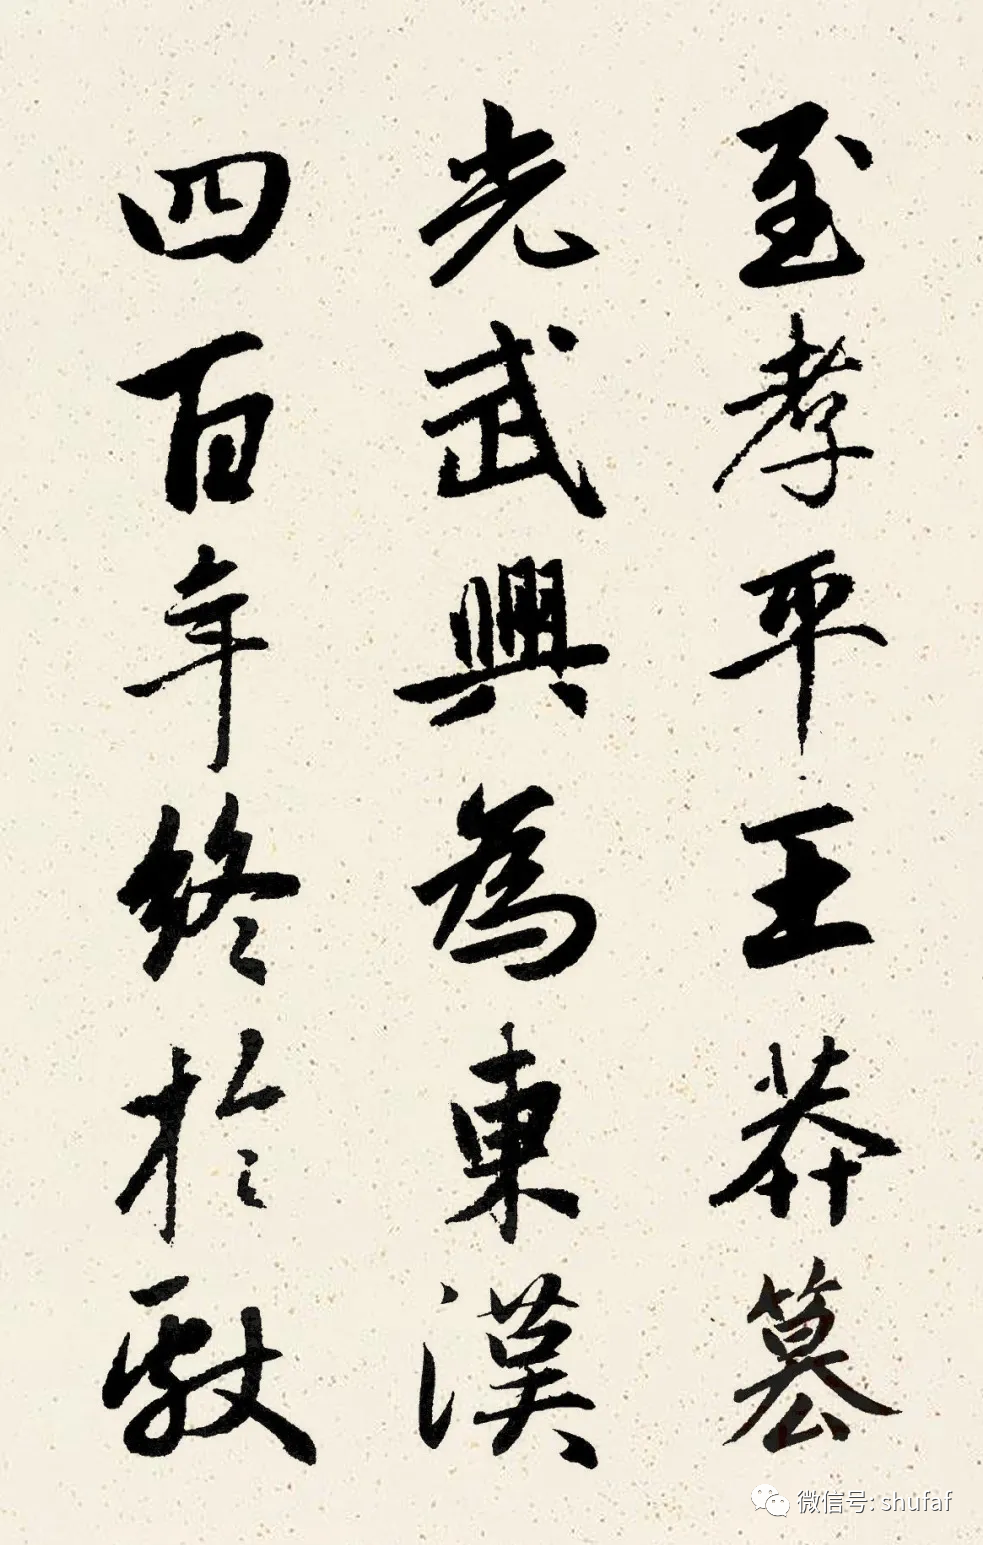 至孝平王莽篡
光武興為東漢
四百年終於獻
微信号: shufaf